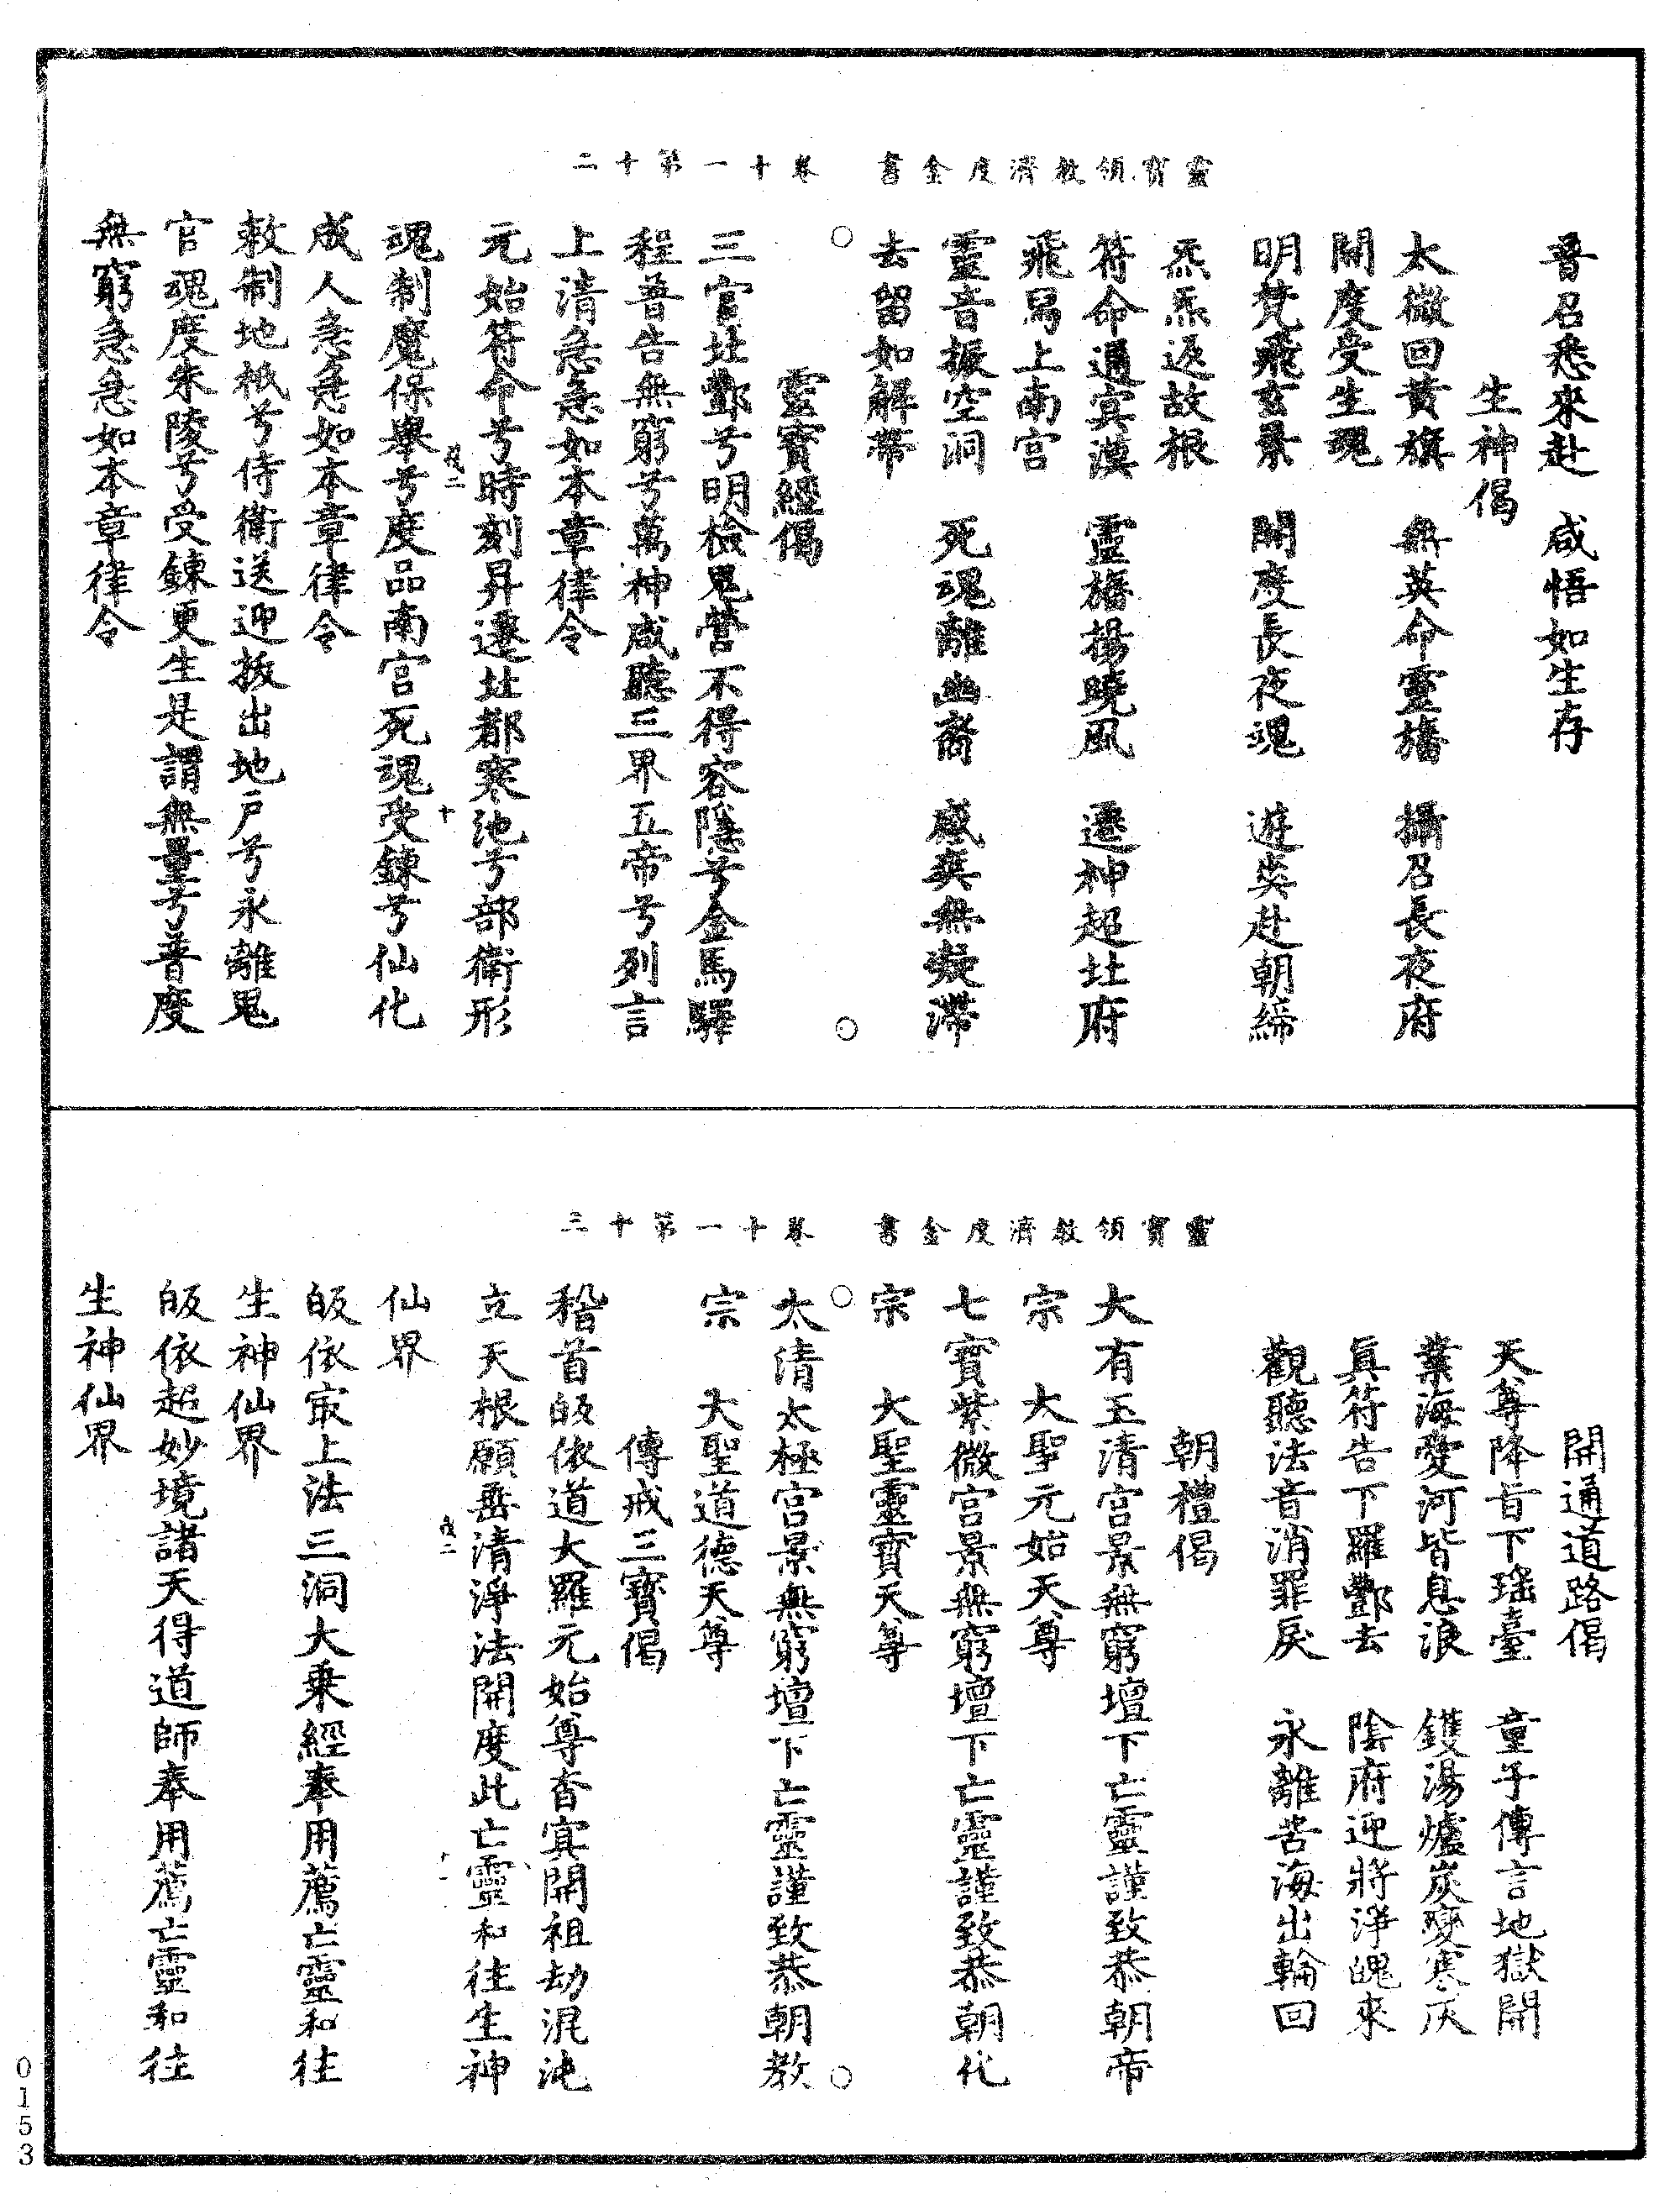 靈寶領教濟度金書　卷十一第十二
普召悉來赴　咸悟如生存
生神偈
太微回黃旗　無英命靈旛　攝召長夜府
開度受生魂
明梵飛玄景　開度長夜魂　遊爽赴朝締
炁炁返故根
符命通㝠漠　靈旛揚曉風　遷神超北府
飛舄上南宮
靈音振空洞　死魂離幽裔　感爽無凝滯
去留如解帶
靈寶經偈
三官北酆兮明檢鬼營不得容隱兮金馬驛
程普告無窮兮萬神咸聽三界五帝兮列言
上清急急如本章律令
元始符命兮時刻昇遷北都寒池兮部衛形
魂制魔保舉兮度品南宮死魂受鍊兮仙化
成人急急如本章律令
敕制地祇兮侍衛送迎拔出地戶兮永離鬼
官魂度朱陵兮受鍊更生是謂無量兮普度
無窮急急如本章律令
靈寶領教濟度金書　卷十一第十三
開通道路偈
天尊降旨下瑤臺　童子傳言地獄開
業海愛河皆息浪　鑊湯爐炭變寒灰
真符告下羅酆去　陰府迎將淨魄來
觀聽法音消罪戾　永離苦海出輪回
朝禮偈
大有玉清宮景無窮壇下亡靈謹致恭朝帝
宗　大聖元始天尊
七寶紫微宮景無窮壇下亡靈謹致恭朝代
宗　大聖靈寶天尊
太清太極宮景無窮壇下亡靈謹致恭朝教
宗　大聖道德天尊
傳戒三寶偈
稽首皈依道大羅元始尊杳㝠開祖劫混沌
立天根願垂清淨法開度此亡靈和往生神
仙界
皈依㝡上法三洞大乘經奉用薦亡靈和往
生神仙界
皈依超妙境諸天得道師奉用薦亡靈和往
生神仙界
0153